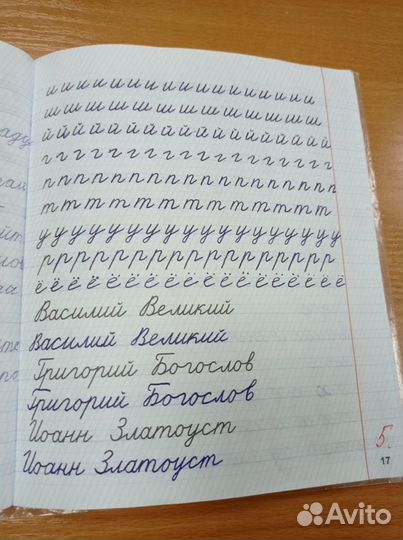 и и и и и и и и и и и и и и и и и
ш ш ш ш ш ш ш ш ш ш ш ш ш ш ш
й й й й й й й й й й й й й й й й й й
г г г г г г г г г г г г г г г г г
п п п п п п п п п п п п п п п п п п п
т т т т т т т т т т т т т т
у у у у у у у у у у у у у у у у у у у
р р р р р р р р р р р р р р р р р р
ё ё ё ё ё ё ё ё ё ё ё ё ё ё ё ё ё ё ё
Василий Великий
Василий Великий
Григорий Богослов
Григорий Богослов
Иоанн Златоуст
Иоанн Златоуст
5.
17
Avito